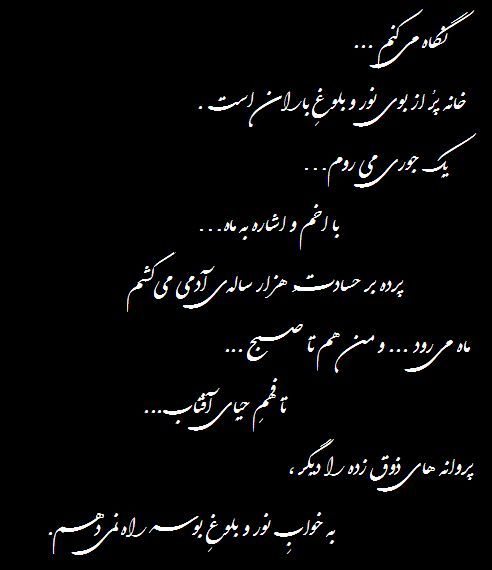 نگاه می کنم ...
خانه پُر از بوی نور و بلوغِ باران است .
یک جوری می روم...
با اخم و اشاره به ماه...
پرده بر حسادت هزار ساله‌ی آدمی می‌کشم
ماه می رود ... و من هم تا صبح ...
تا فهمِ حیای آفتاب...
پروانه های ذوق زده را دیگر ،
به خوابِ نور و بلوغِ بوسه راه نمی دهم.